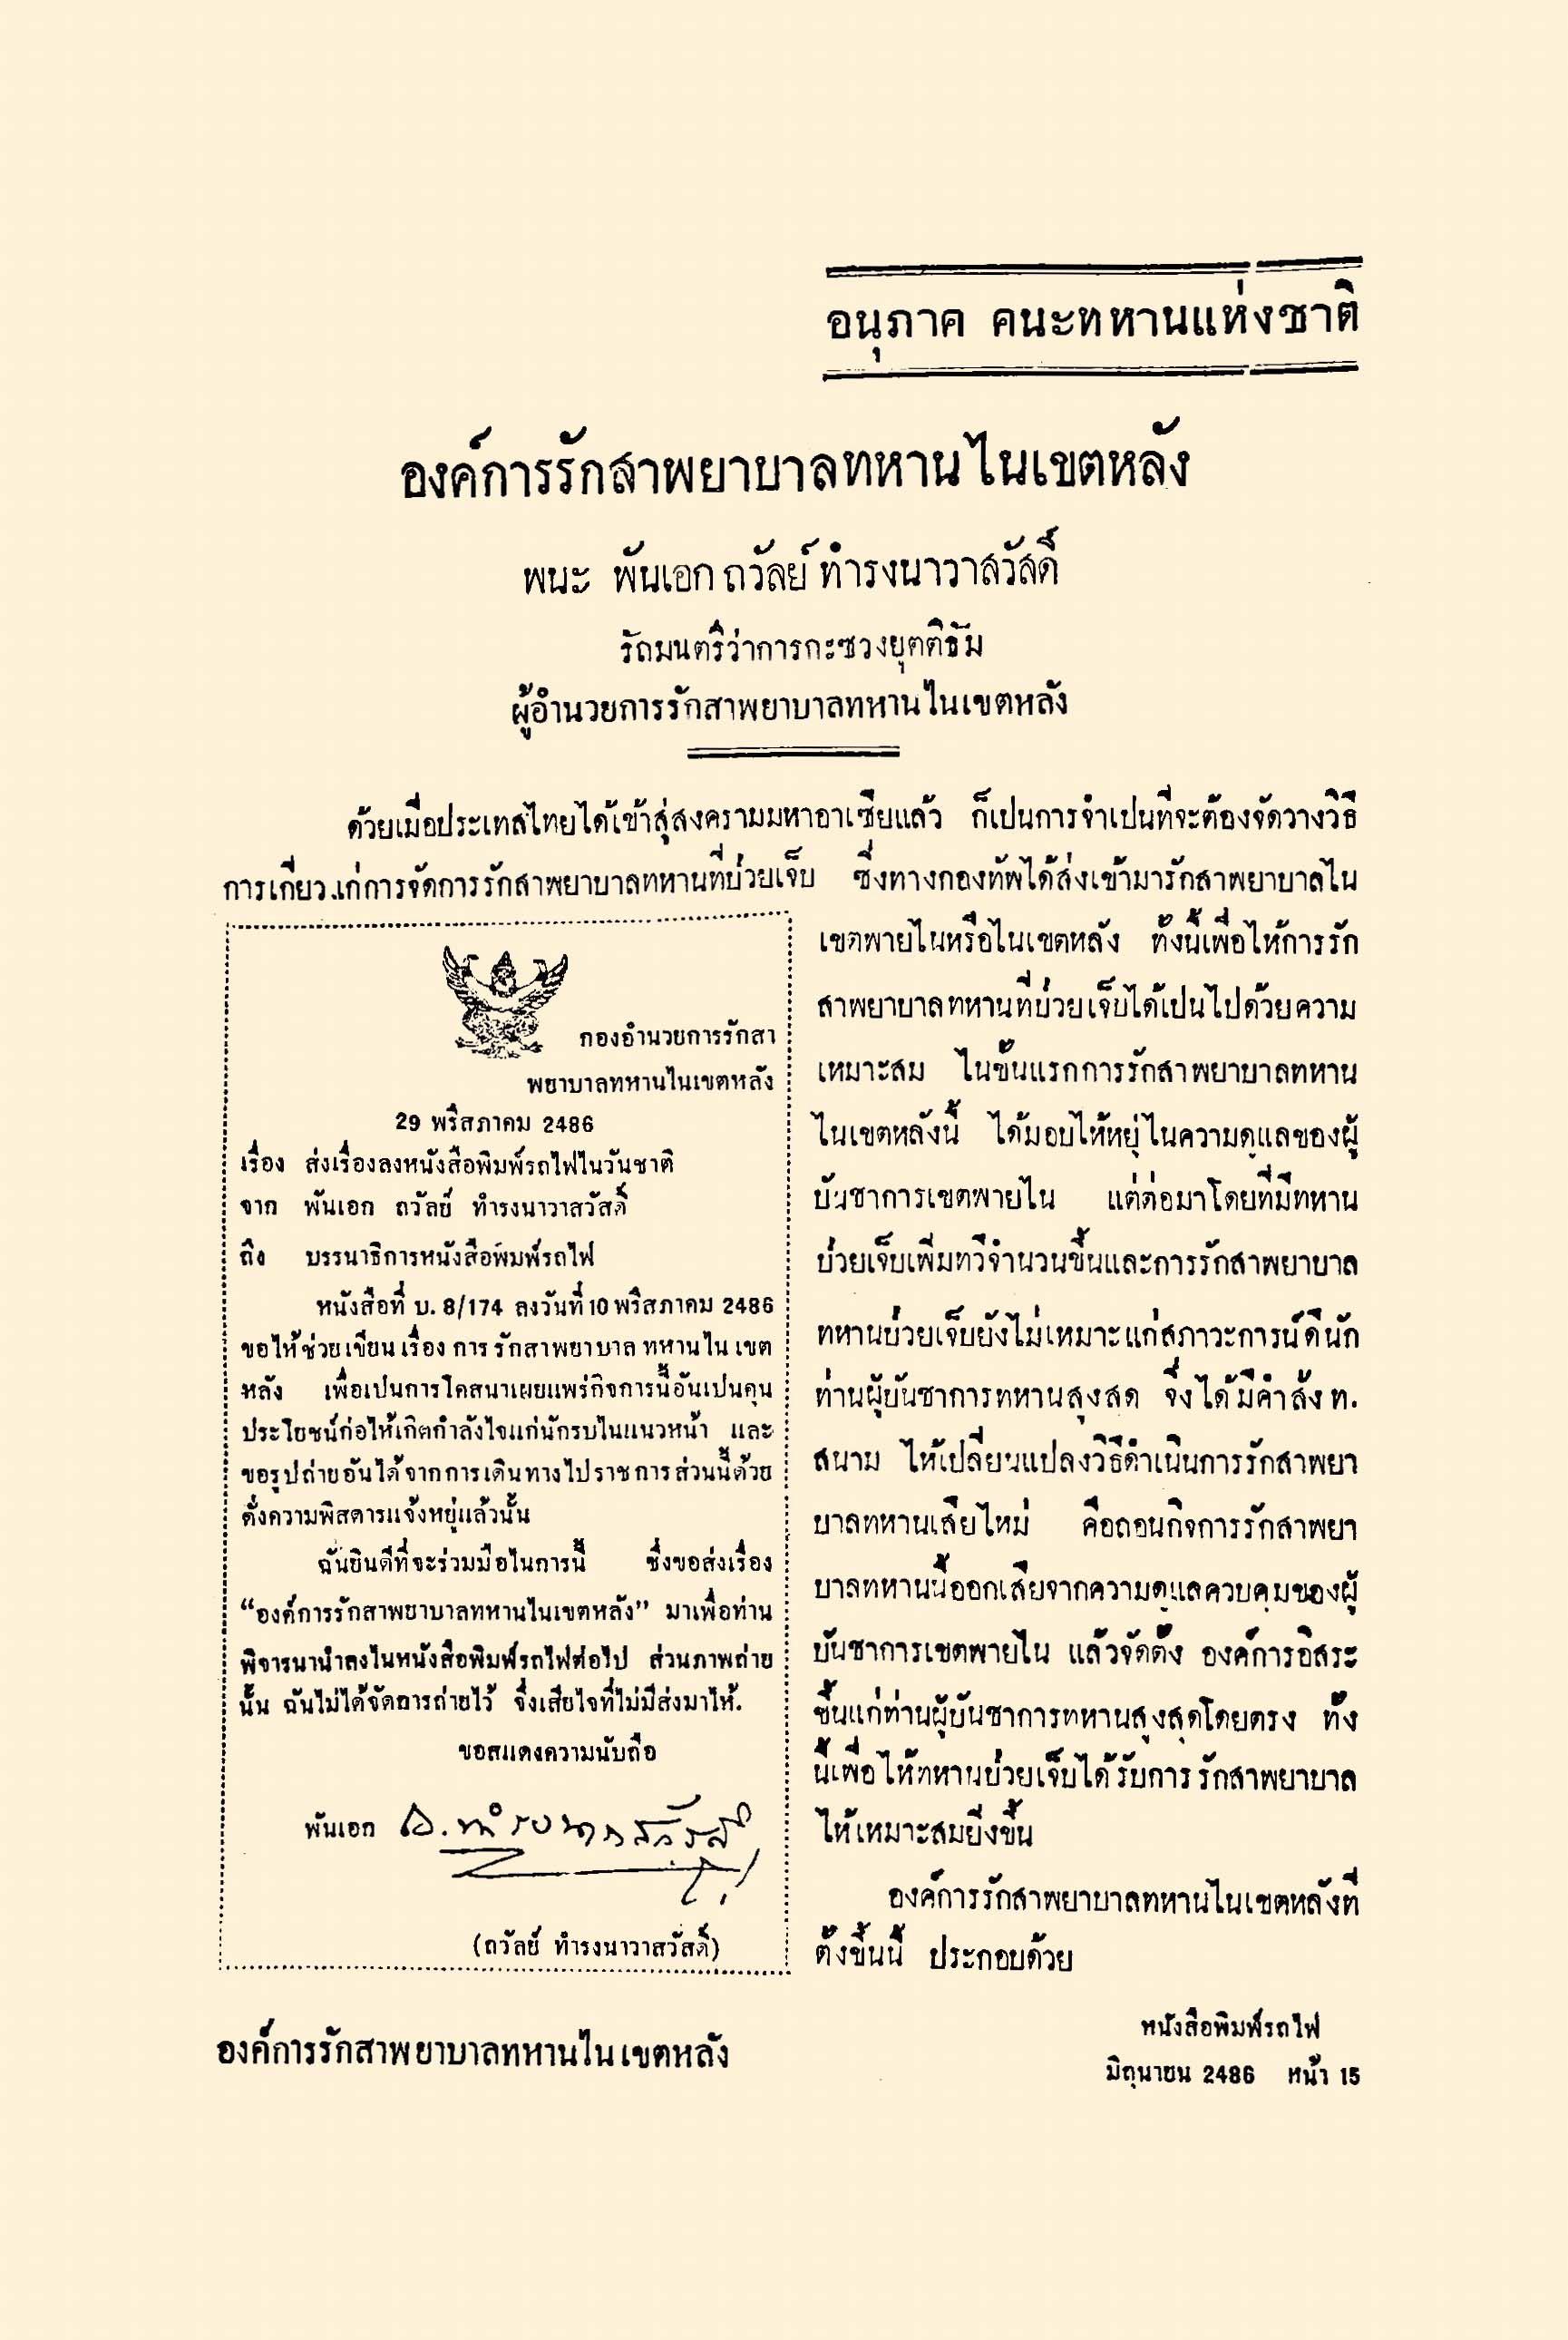 อนุภาค คนะทหานแห่งชาติ
องค์การรักสาพยาบาลทหานไนเขตหลัง
พนะ พันเอก ถวัลย์ ทำรงนาวาสวัสดิ์
รัถมนตรีว่าการกะซวงยุตติธัม
ผู้อำนวยการรักสาพยาบาลทหานไนเขตหลัง
ด้วยเมื่อประเทสไทยได้เข้าสู่สงครามมหาอาเซียแล้ว ก็เปนการจำเปนที่จะต้องจัดวางวิธี
การเกี่ยวแก่การจัดการรักสาพยาบาลทหานที่ป่วยเจ็บ ซึ่งทางกองทัพได้ส่งเข้ามารักสาพยาบาลไน
เขตพายไนหรือไนเขตหลัง ทั้งนี้เพื่อไห้การรัก
สาพยาบาลทหานที่ป่วยเจ็บได้เปนไปด้วยความ
เหมาะสม ไนขั้นแรกการรักสาพยาบาลทหาน
ไนเขตหลังนี้ ได้มอบไห้หยู่ไนความดูแลของผู้
บันชาการเขตพายไน แต่ต่อมาโดยที่มีทหาน
ป่วยเจ็บเพิ่มทวีจำนวนขึ้นและการรักสาพยาบาล
ทหานป่วยเจ็บยังไม่เหมาะแก่สภาวะการน์ดีนัก
ท่านผู้บันชาการทหานสูงสุด จึ่งได้มีคำสั่ง ท.
สนาม ไห้เปลี่ยนแปลงวิธีดำเนินการรักสาพยา
บาลทหานเสียไหม่ คือถอนกิจการรักสาพยา
บาลทหานนี้ออกเสียจากความดูแลควบคุมของผู้
บันชาการเขตพายไน แล้วจัดตั้ง องค์การอิสระ
ขึ้นแก่ท่านผู้บันชาการทหานสูงสุดโดยตรง ทั้ง
นี้เพื่อไห้ทหานป่วยเจ็บได้รับการรักสาพยาบาล
ไห้เหมาะสมยิ่งขึ้น
องค์การรักสาพยาบาลทหานไนเขตหลังที่
ตั้งขึ้นนี้ ประกอบด้วย
กองอำนวยการรักสา
พยาบาลทหานไนเขตหลัง
29 พรึสภาคม 2486
เรื่อง ส่งเรื่องลงหนังสือพิมพ์รถไฟไนวันชาติ
จาก พันเอก ถวัลย์ ทำรงนาวาสวัสดิ์
ถึง บรรนาธิการหนังสือพิมพ์รถไฟ
หนังสือที่ บ. 8/174 ลงวันที่ 10 พรึสภาคม 2486
ขอไห้ช่วยเขียนเรื่องการรักสาพยาบาลทหานไนเขต
หลัง เพื่อเปนการโคสนาเผยแพร่กิจการนี้อันเปนคุน
ประโยชน์ก่อไห้เกิดกำลังไจแก่นักรบไนแนวหน้า และ
ขอรูปถ่ายอันได้จากการเดินทางไปราชการส่วนนี้ด้วย
ดั่งความพิสดารแจ้งหยู่แล้วนั้น
ฉันยินดีที่จะร่วมมือไนการนี้ ซึ่งขอส่งเรื่อง
“องค์การรักสาพยาบาลทหานไนเขตหลัง” มาเพื่อท่าน
พิจารนานำลงไนหนังสือพิมพ์รถไฟต่อไป ส่วนภาพถ่าย
นั้น ฉันไม่ได้จัดการถ่ายไว้ จึ่งเสียไจที่ไม่มีส่งมาไห้.
ขอสแดงความนับถือ
พันเอก ถ. ทำรงนาวาสวัสดิ์
(ถวัลย์ ทำรงนาวาสวัสดิ์)
องค์การรักสาพยาบาลทหานไนเขตหลัง
หนังสือพิมพ์รถไฟ
มิถุนายน 2486 หน้า 15